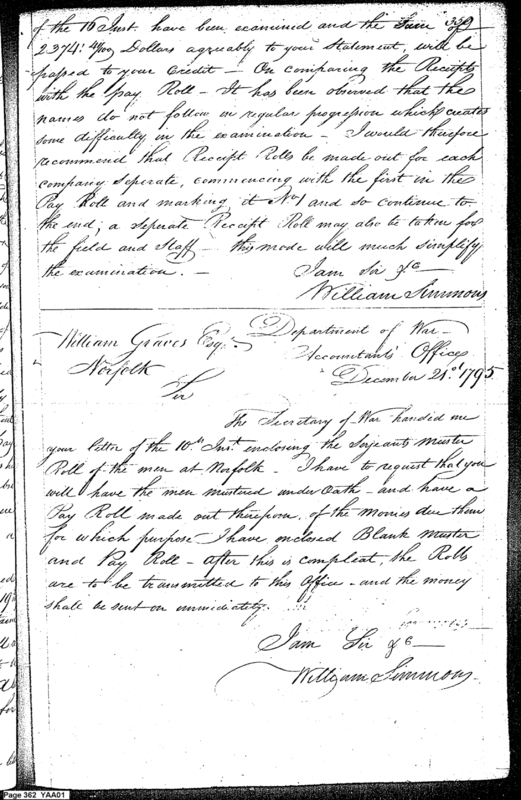 339
of the 16 Inst. have been examined and the Sum of
2374. 4/100 Dollars agreably to your Statement, will be
passed to your Credit — On comparing the Receipts
with the pay Roll — It has been observed that the
names do not follow in regular progression which creates
some difficulty in the examination — I would therefore
recommend that Receipt Rolls be made out for each
company seperate, commencing with the first in the
Pay Roll and marking it No 1 and so continue to
the end, a seperate Receipt Roll may also be taken for
the field and Staff — this mode will much simplify
the examination. —
I am Sir &c —
William Simmons
Department of War —
William Graves Esqr.
Accountants Office
Norfolk
December 21st 1795.
Sir
The Secretary of War handed me
your letter of the 10th Inst. enclosing the Serjeants muster
Roll of the men at Norfolk — I have to request that you
will have the men mustered under Oath — and have a
Pay Roll made out thereon, of the monies due them
for which purpose I have enclosed Blank Muster
and Pay Roll — after this is compleat, the Rolls
are to be transmitted to this Office — and the money
shall be sent on immediately.
I am Sir &c —
William Simmons —
Page 362 YAA01